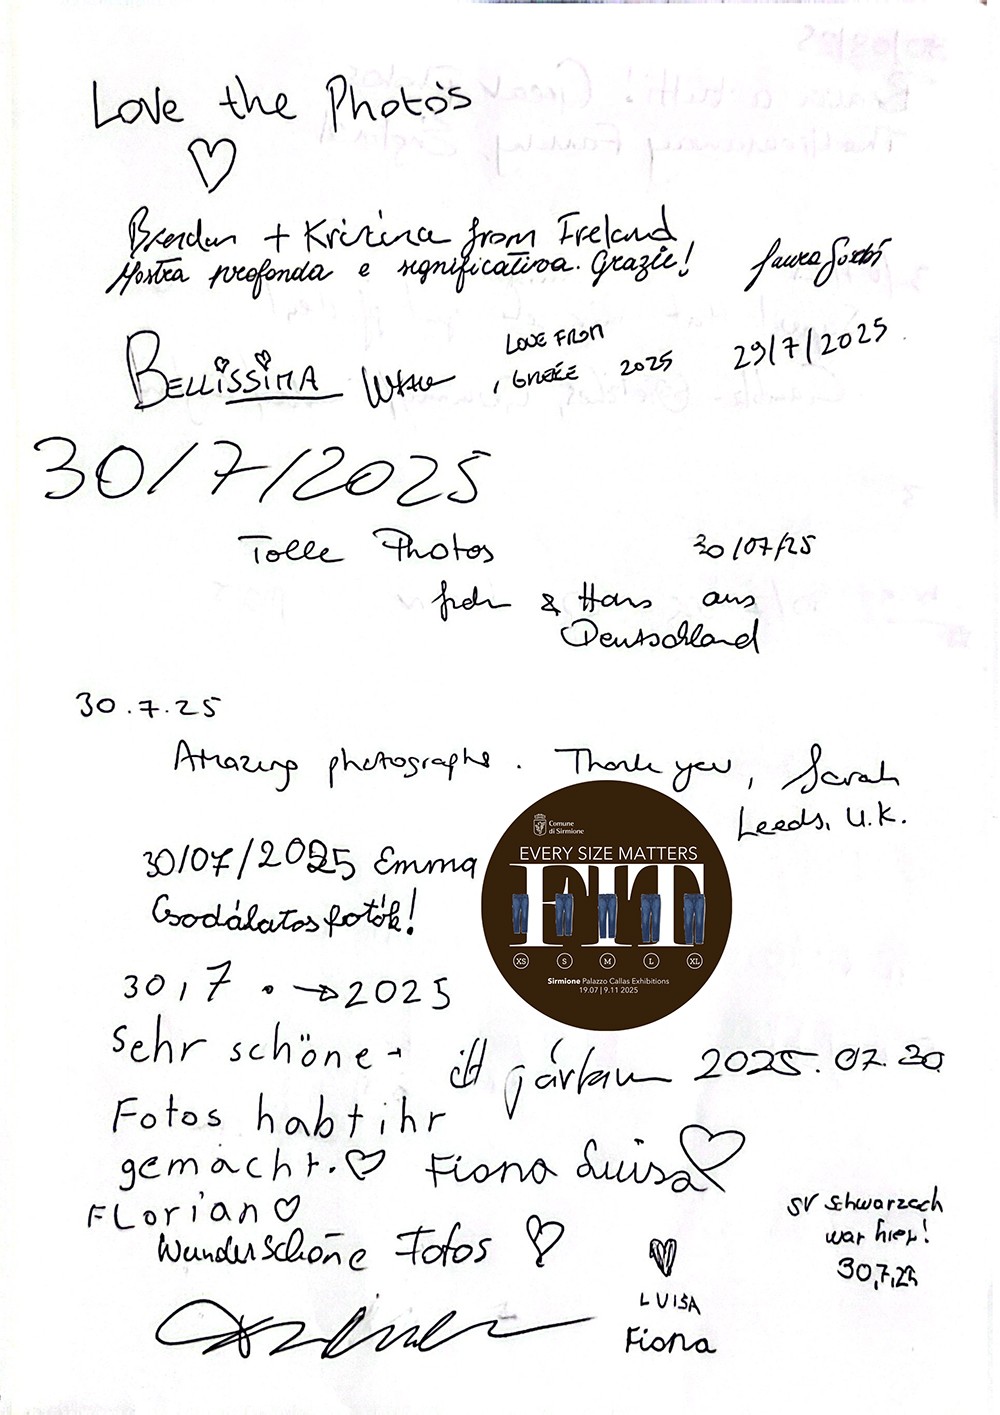 Love the Photo's
Brendan + Kristina from Ireland
Mostra profonda e significativa. Grazie!
BELLISSIMA
LOVE FROM
GREECE 2025
29/7/2025
30/7/2025
Tolle Photos
30/07/25
& Hans aus
Deutschland
30.7.25
Amazing photographs. Thank you, Sarah
Leeds, U.K.
30/07/2025 Emma
Csodálatos fotók!
Comune
di Sirmione
EVERY SIZE MATTERS
FIT
XS S M L XL
Sirmione Palazzo Callas Exhibitions
19.07 | 9.11 2025
30,7. → 2025
Sehr schöne
itt jártam 2025.07.30
Fotos habt ihr
gemacht. Fiona Luisa
Florian
Wunderschöne Fotos
SV Schwarzach
war hier!
30,7,25
LUISA
Fiona